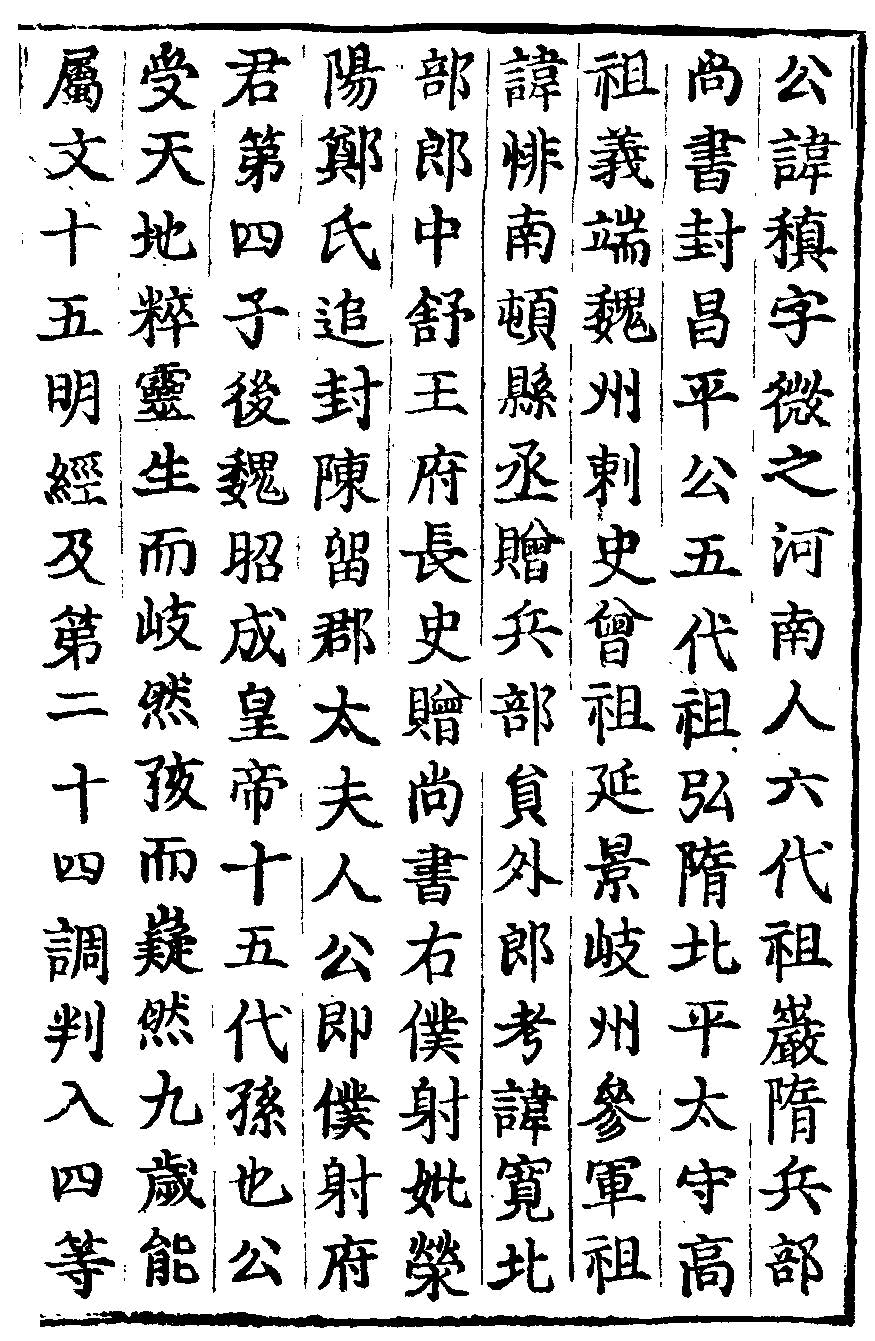 公諱稹字微之河南人六代祖巖隋兵部
尚書封昌平公五代祖弘隋北平太守高
祖義端魏州刺史曾祖延景岐州參軍祖
諱悱南頓縣丞贈兵部員外郎考諱寬北
部郎中舒王府長史贈尚書右僕射妣滎
陽鄭氏追封陳留郡太夫人公即僕射府
君第四子後魏昭成皇帝十五代孫也公
受天地粹靈生而岐然孩而嶷然九歲能
屬文十五明經及第二十四調判入四等